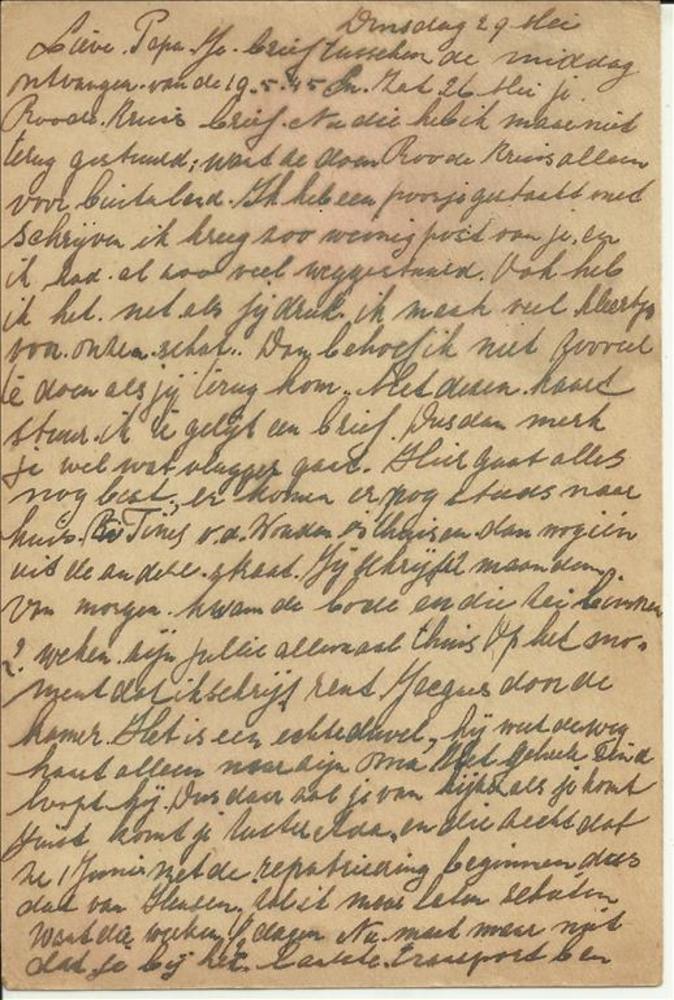 Dinsdag 29 Mei
Lieve Papa. Je brief tusschen de middag
ontvangen. van de 19-5-45 En. Zat 26 Mei je
Roode Kruis brief. Nu die heb ik maar niet
terug gestuurd; want ze doen Roode Kruis alleen
voor buitenland. Ik heb een poosje gestaakt met
schrijven ik kreeg zoo weinig post van je. en
ik had. al zoo veel weggestuurd. Ook heb
ik het. net als jij druk. ik maak veel kleertjes
voor. onzen schat.. Dan behoef ik niet zooveel
te doen als jij terug kom.. Met dezen kaart
stuur. ik te gelijk een brief. Dus dan merk
je wel wat vlugger gaat. Hier gaat alles
nog best, er komen er nog steeds naar
huis. Tines v.d. Wouden is thuis en dan nog een
uit de andere straat. Jij schrijft 2 maanden.
Van morgen. kwam de bode en die zei binnen
2 weken zijn jullie allemaal thuis Op het mo-
ment dat ik schrijf rent Jacques door de
kamer. Het is een echte duvel, hij weet de weg
haast alleen naar zijn oma Met geheele eind
loopt hij. Dus daar zal je van kijken als je komt
Juist komt je zuster Ada, en die zegt dat
ze 1 Junie met de repatrieering beginnen dus
dat van zal ik maar laten schieten
Want die weeken dagen Nu maak maar niet
dat je bij het laatste transport ben